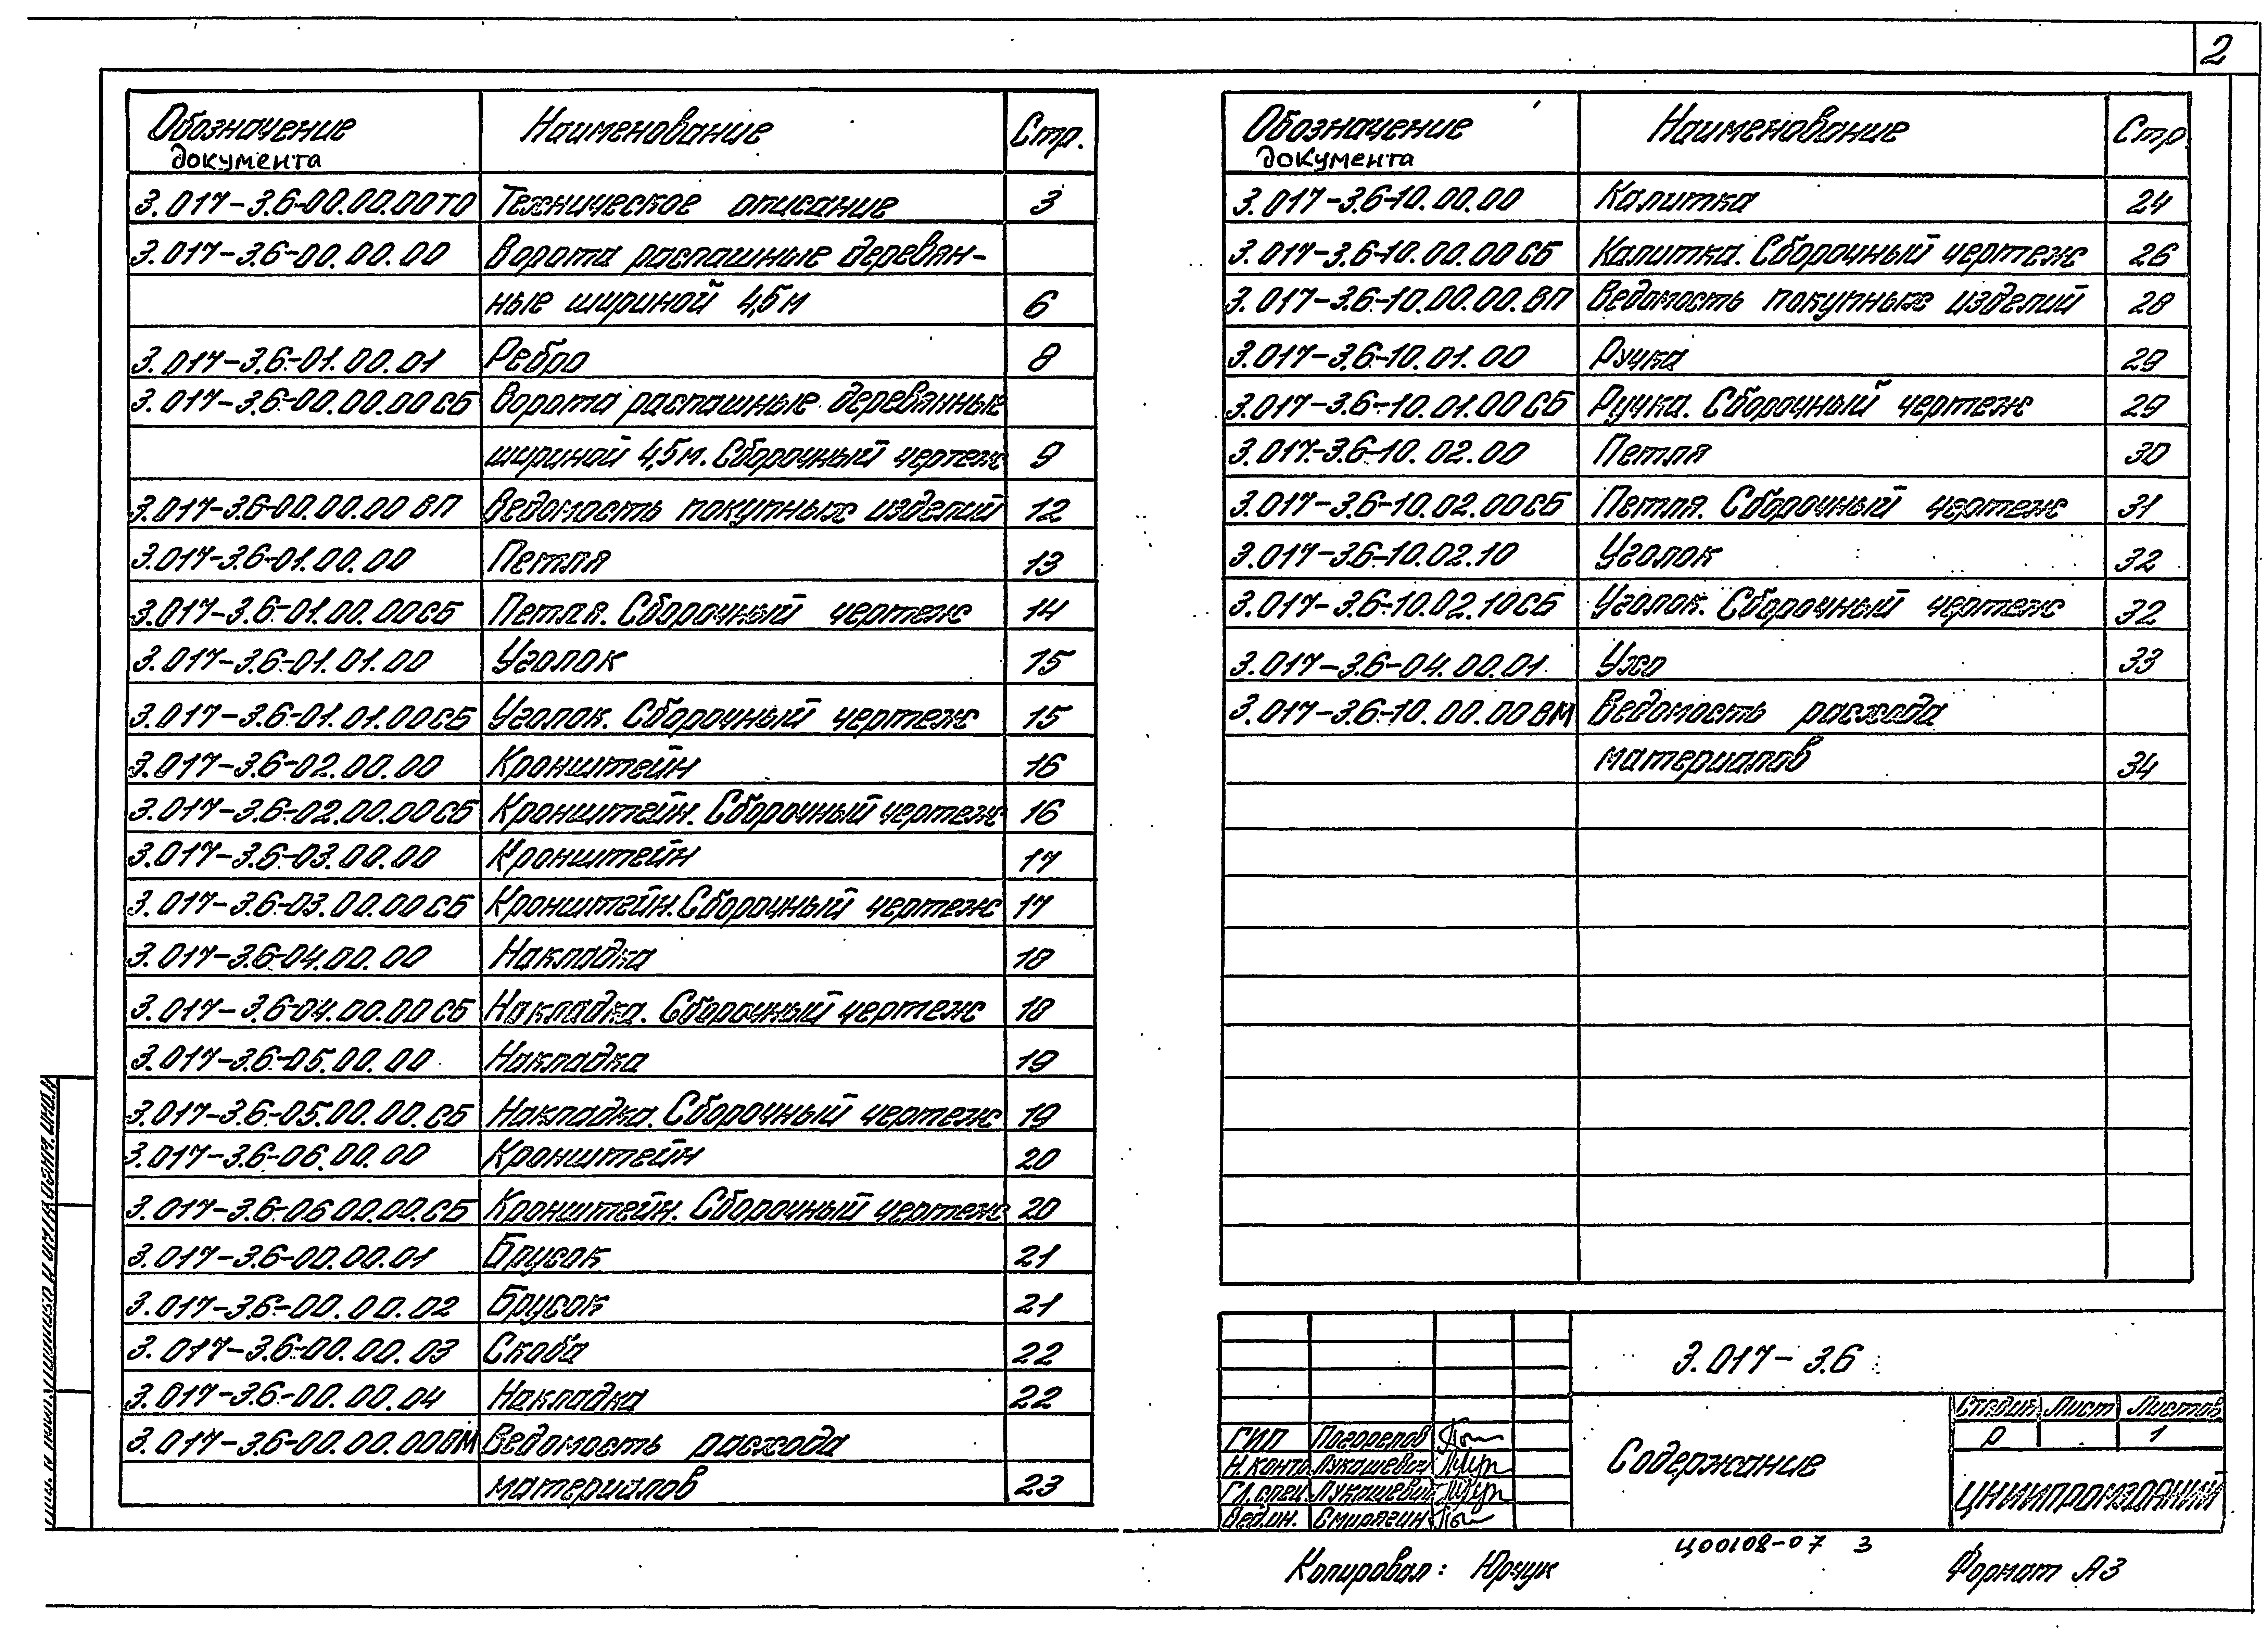 2
Обозначение документа Наименование Стр.
3.017-3.6-00.00.00ТО Техническое описание 3
3.017-3.6-00.00.00 Ворота распашные деревян-
ные шириной 4,5м 6
3.017-3.6-01.00.01 Ребро 8
3.017-3.6-00.00.00СБ Ворота распашные деревянные
шириной 4,5м. Сборочный чертеж 9
3.017-3.6-00.00.00 ВП Ведомость покупных изделий 12
3.017-3.6-01.00.00 Петля 13
3.017-3.6-01.00.00СБ Петля. Сборочный чертеж 14
3.017-3.6-01.01.00 Уголок 15
3.017-3.6-01.01.00СБ Уголок. Сборочный чертеж 15
3.017-3.6-02.00.00 Кронштейн 16
3.017-3.6-02.00.00СБ Кронштейн. Сборочный чертеж 16
3.017-3.6-03.00.00 Кронштейн 17
3.017-3.6-03.00.00СБ Кронштейн. Сборочный чертеж 17
3.017-3.6-04.00.00 Накладка 18
3.017-3.6-04.00.00СБ Накладка. Сборочный чертеж 18
3.017-3.6-05.00.00 Накладка 19
3.017-3.6-05.00.00.СБ Накладка. Сборочный чертеж 19
3.017-3.6-06.00.00 Кронштейн 20
3.017-3.6-06.00.00.СБ Кронштейн. Сборочный чертеж 20
3.017-3.6-00.00.01 Брусок 21
3.017-3.6-00.00.02 Брусок 21
3.017-3.6-00.00.03 Скоба 22
3.017-3.6-00.00.04 Накладка 22
3.017-3.6-00.00.00ВМ Ведомость расхода
материалов 23
Обозначение документа Наименование Стр.
3.017-3.6-10.00.00 Калитка 24
3.017-3.6-10.00.00СБ Калитка. Сборочный чертеж 26
3.017-3.6-10.00.00.ВП Ведомость покупных изделий 28
3.017-3.6-10.01.00 Ручка 29
3.017-3.6-10.01.00СБ Ручка. Сборочный чертеж 29
3.017-3.6-10.02.00 Петля 30
3.017-3.6-10.02.00СБ Петля. Сборочный чертеж 31
3.017-3.6-10.02.10 Уголок 32
3.017-3.6-10.02.10СБ Уголок. Сборочный чертеж 32
3.017-3.6-04.00.01 Ухо 33
3.017-3.6-10.00.00ВМ Ведомость расхода
материалов 34
3.017-3.6
ГИП Погорелов
Н.контр Лукашевич
Гл.спец. Лукашевич
Вед.ин. Смирягин
Содержание
Стадия Лист Листов
Р 1
ЦНИИПРОМЗДАНИЙ
Ц00108-07 3
Копировал: Юрчук
Формат А3